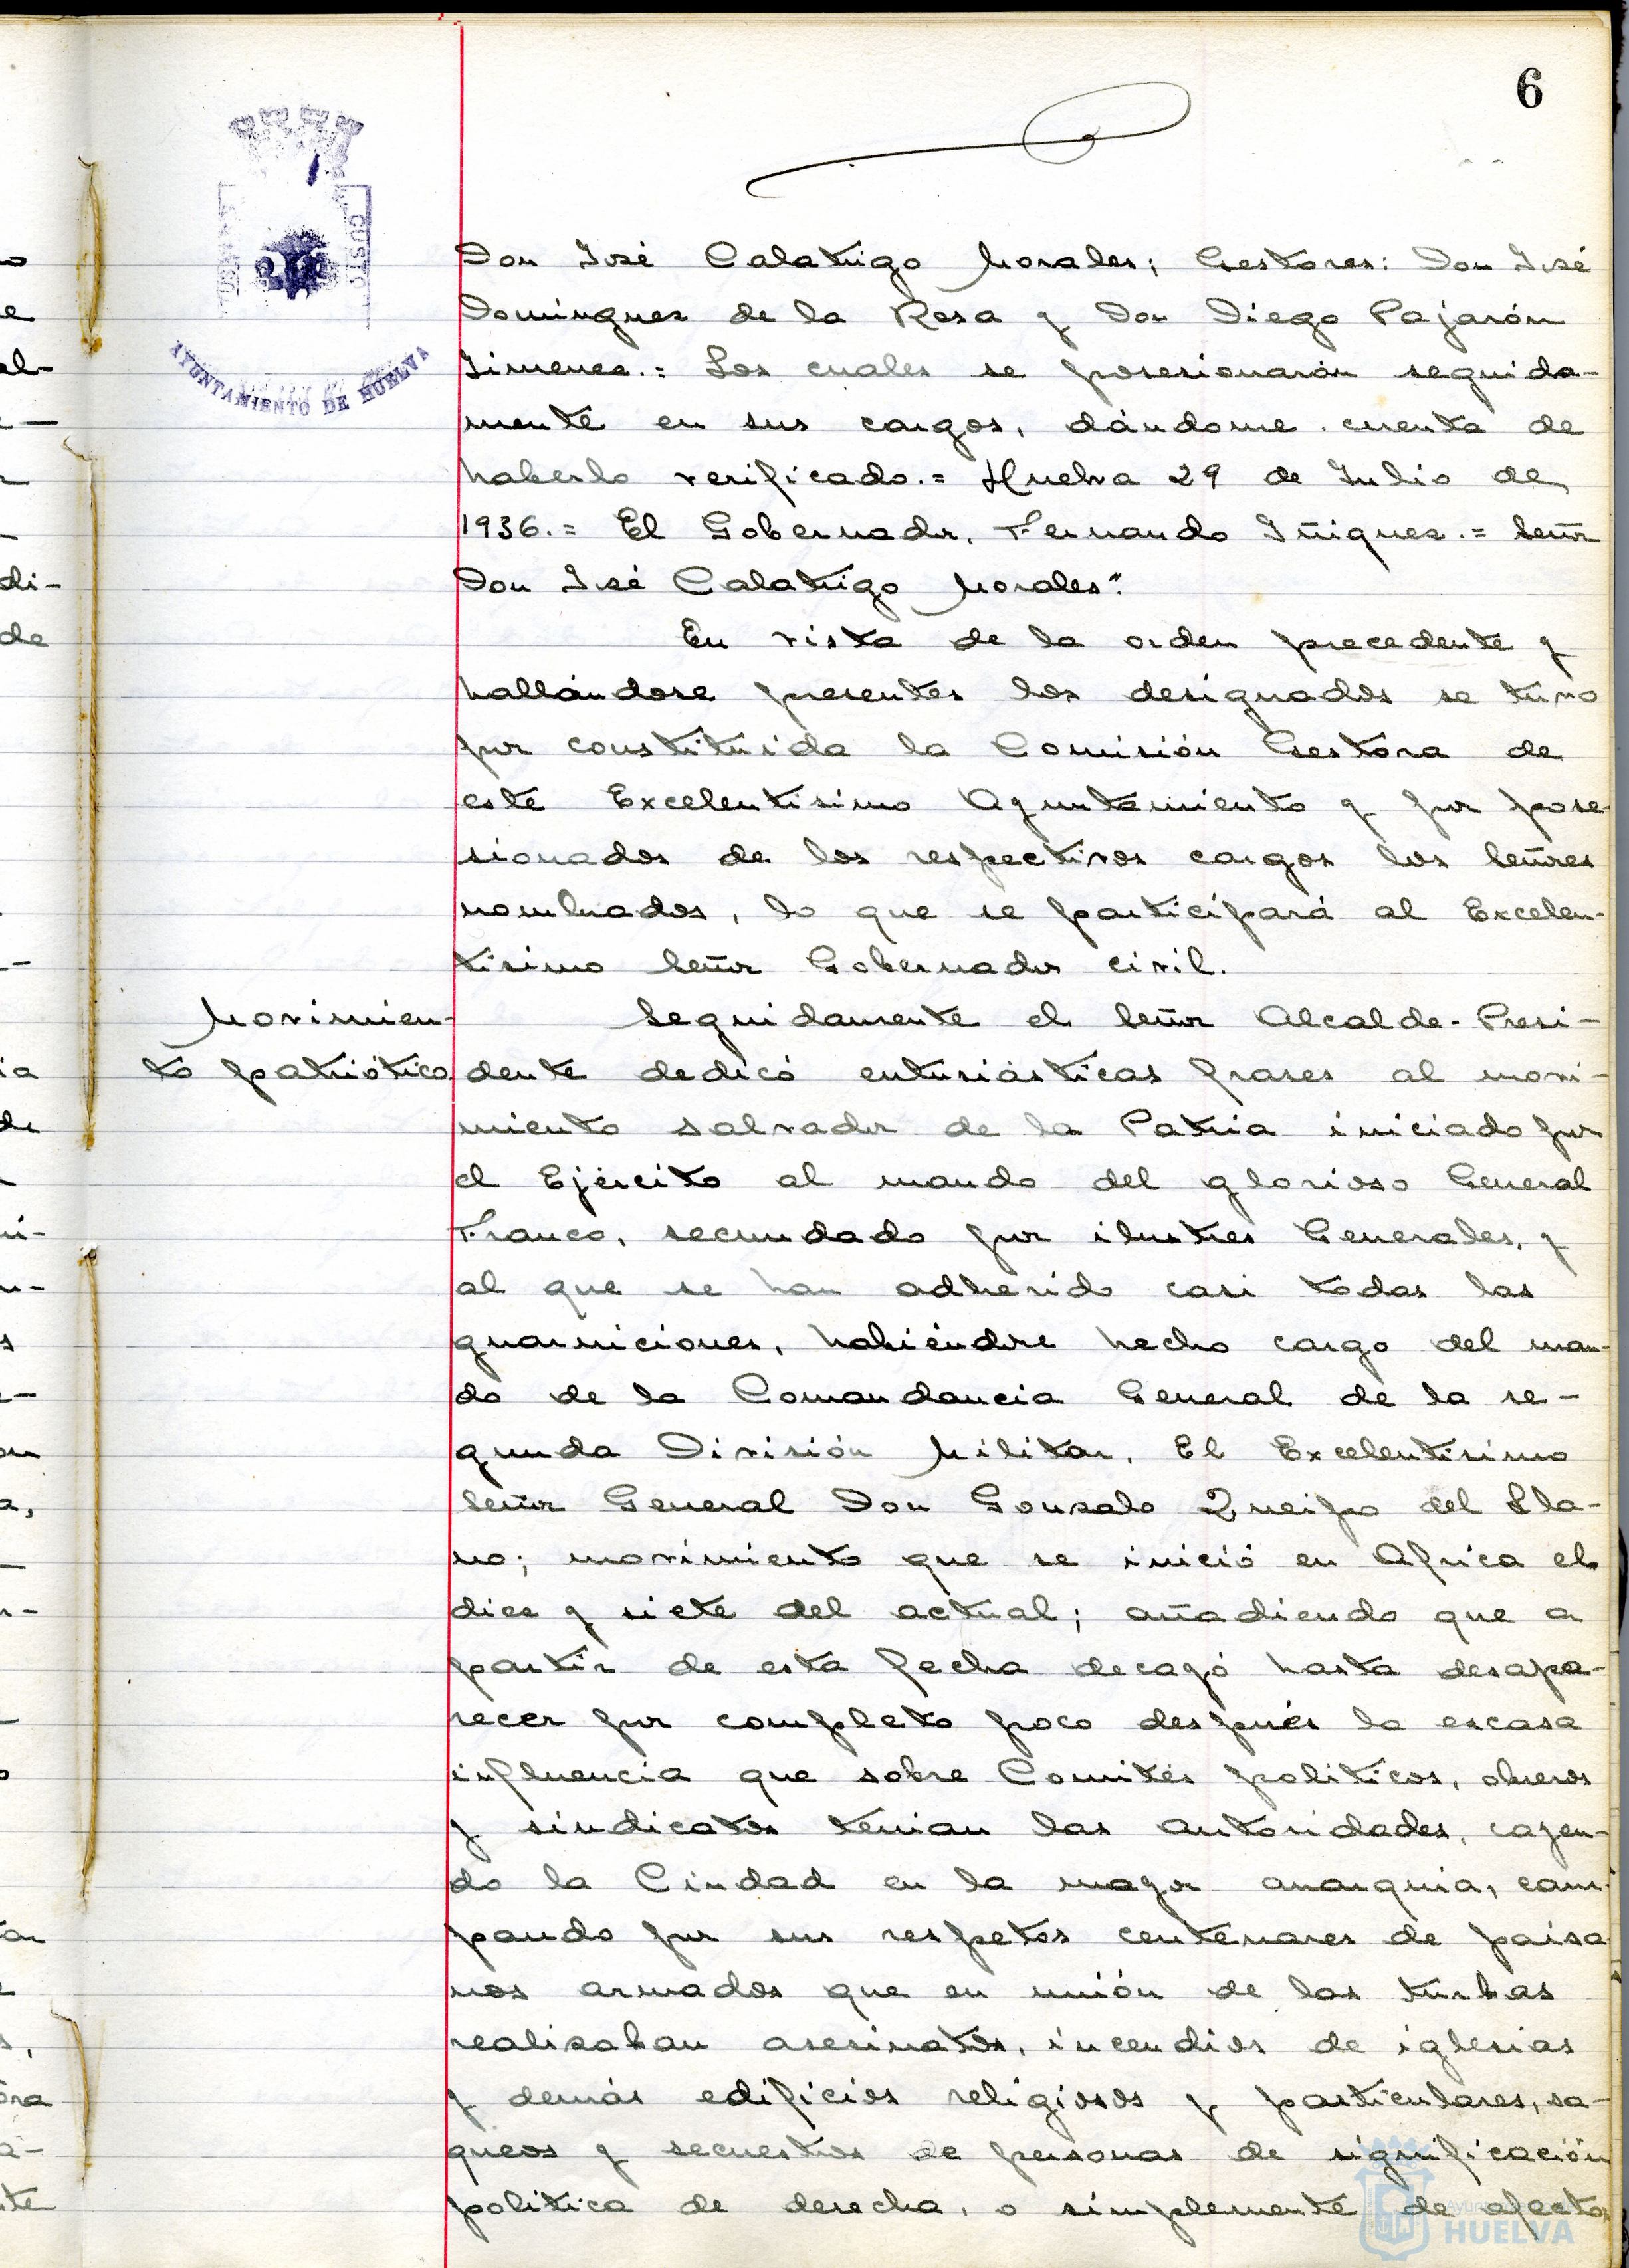 6
AYUNTAMIENTO DE HUELVA
Don José Calatrigo Morales; Gestores: Don José
Dominguez de la Rosa y Don Diego Pajarón
Jimenez.= Los cuales se posesionarán seguida-
mente en sus cargos, dándome cuenta de
haberlo verificado.= Huelva 29 de Julio de
1936.= El Gobernador, Fernando Iñiguez.= Señor
Don José Calatrigo Morales".
En vista de la orden precedente y
hallándose presentes los designados se tuvo
por constituida la Comisión Gestora de
este Excelentisimo Ayuntamiento y por pose-
sionados de los respectivos cargos los Señores
nombrados, lo que se participará al Excelen-
tisimo Señor Gobernador civil.
Movimien-
to patriótico
Seguidamente el Señor Alcalde-Presi-
dente dedicó entusiásticas frases al movi-
miento salvador de la Patria iniciado por
el Ejército al mando del glorioso General
Franco, secundado por ilustres Generales, y
al que se han adherido casi todas las
guarniciones, habiéndose hecho cargo del man-
do de la Comandancia General de la se-
gunda División Militar, El Excelentisimo
Señor General Don Gonzalo Queipo del Lla-
no; movimiento que se inició en Africa el
diez y siete del actual; añadiendo que a
partir de esta fecha decayó hasta desapa-
recer por completo poco después la escasa
influencia que sobre Comités politicos, obreros
y sindicatos tenian las autoridades, cayen-
do la Ciudad en la mayor anarquia, cam-
pando por sus respetos centenares de paisa
nos armados que en unión de las turbas
realizaban asesinatos, incendios de iglesias
y demás edificios religiosos y particulares, sa-
queos y secuestros de personas de significación
politica de derecha, o simplemente de afecto
HUELVA